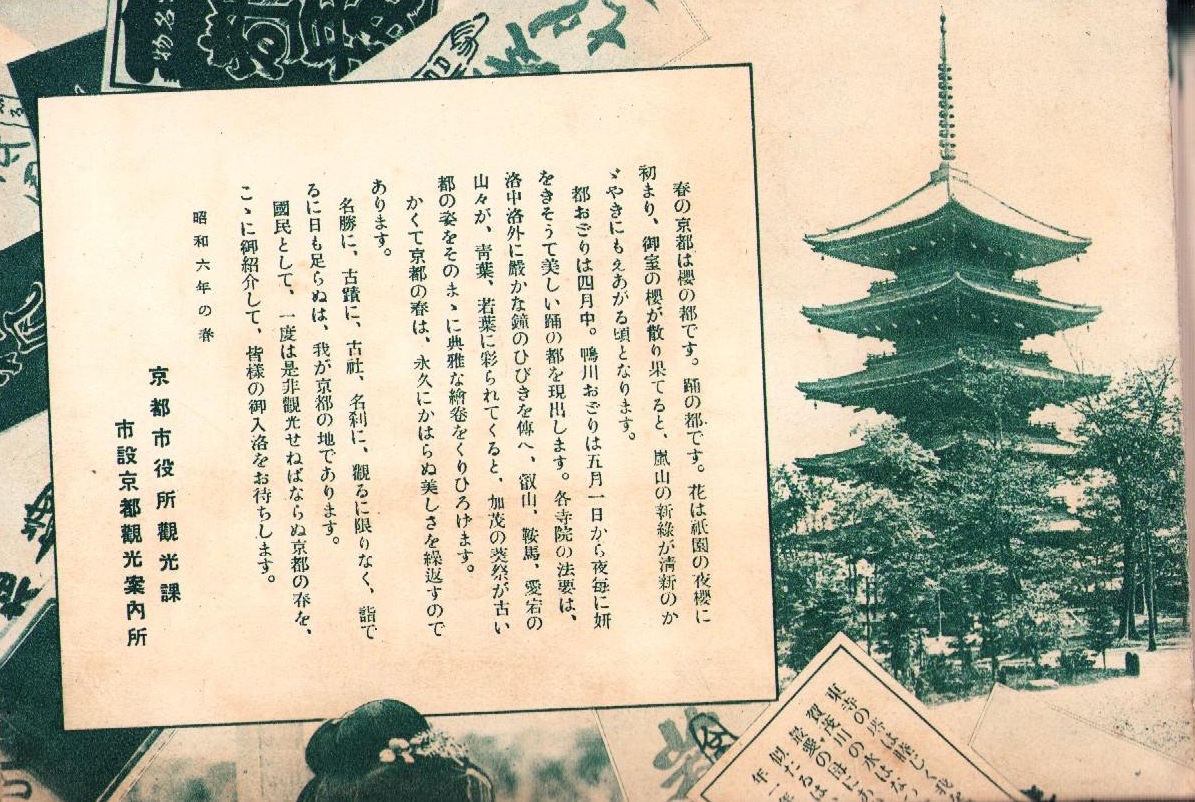 春の京都は櫻の都です。踊の都です。花は祇園の夜櫻に
初まり、御室の櫻が散り果てると、嵐山の新綠が淸新のか
ゞやきにもえあがる頃となります。
都おどりは四月中。鴨川おどりは五月一日から夜每に妍
をきそうて美しい踊の都を現出します。各寺院の法要は、
洛中洛外に嚴かな鐘のひびきを傳へ、叡山、鞍馬、愛宕の
山々が、靑葉、若葉に彩られてくると、加茂の葵祭が古い
都の姿をそのまゝに典雅な繪卷をくりひろげます。
かくて京都の春は、永久にかはらぬ美しさを繰返すので
あります。
名勝に、古蹟に、古社、名刹に、觀るに限りなく、詣で
るに日も足らぬは、我が京都の地であります。
國民として、一度は是非觀光せねばならぬ京都の春を、
こゝに御紹介して、皆樣の御入洛をお待ちします。
昭和六年の春
京都市役所觀光課
市設京都觀光案內所
東寺の塔は睦じく我を
賀茂川の水はな
最愛の母に
似たるは
年
名物